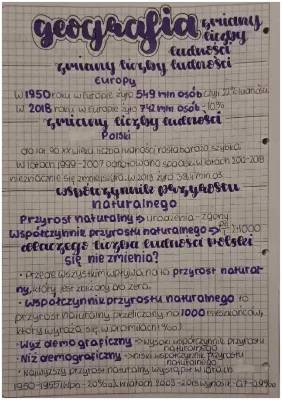 geografia zmiany
liczby
ludności
zmiany liczby ludności
Europy
W 1950 roku w Europie żyło 549 mln osób czyli 22% ludności.
W 2018 roku w Europie żyło 742 mln osób - 10%
zmiany liczby ludności
Polski
do lat 90 XX wieku liczba ludności rosła bardzo szybko.
W latach 1999-2007 odnotowano spadek w latach 2012-2018
nieznacznie się zmniejszyła. w 2018 żyło 38,4 mln os.
współczynnik przyrostu
naturalnego
Przyrost naturalny => urodzenia - zgony
Współczynnik przyrostu naturalnego => ·1000
dlaczego liczba ludności Polski
się nie zmienia?
• Przede wszystkim wpływa na to przyrost natural-
ny, który jest zbliżony do zera.
• Współczynnik przyrostu naturalnego to
przyrost naturalny przeliczony na 1000 mieszkańców,
który wyraża się w promilach (‰)
• Wyż demograficzny => wysoki współczynnik przyrostu
naturalnego
• Niż demograficzny => niski współczynnik przyrostu
naturalnego
• Najwyższy przyrost naturalny wystąpił w latach
1950-1955 w latach 2003-2018 wynosił